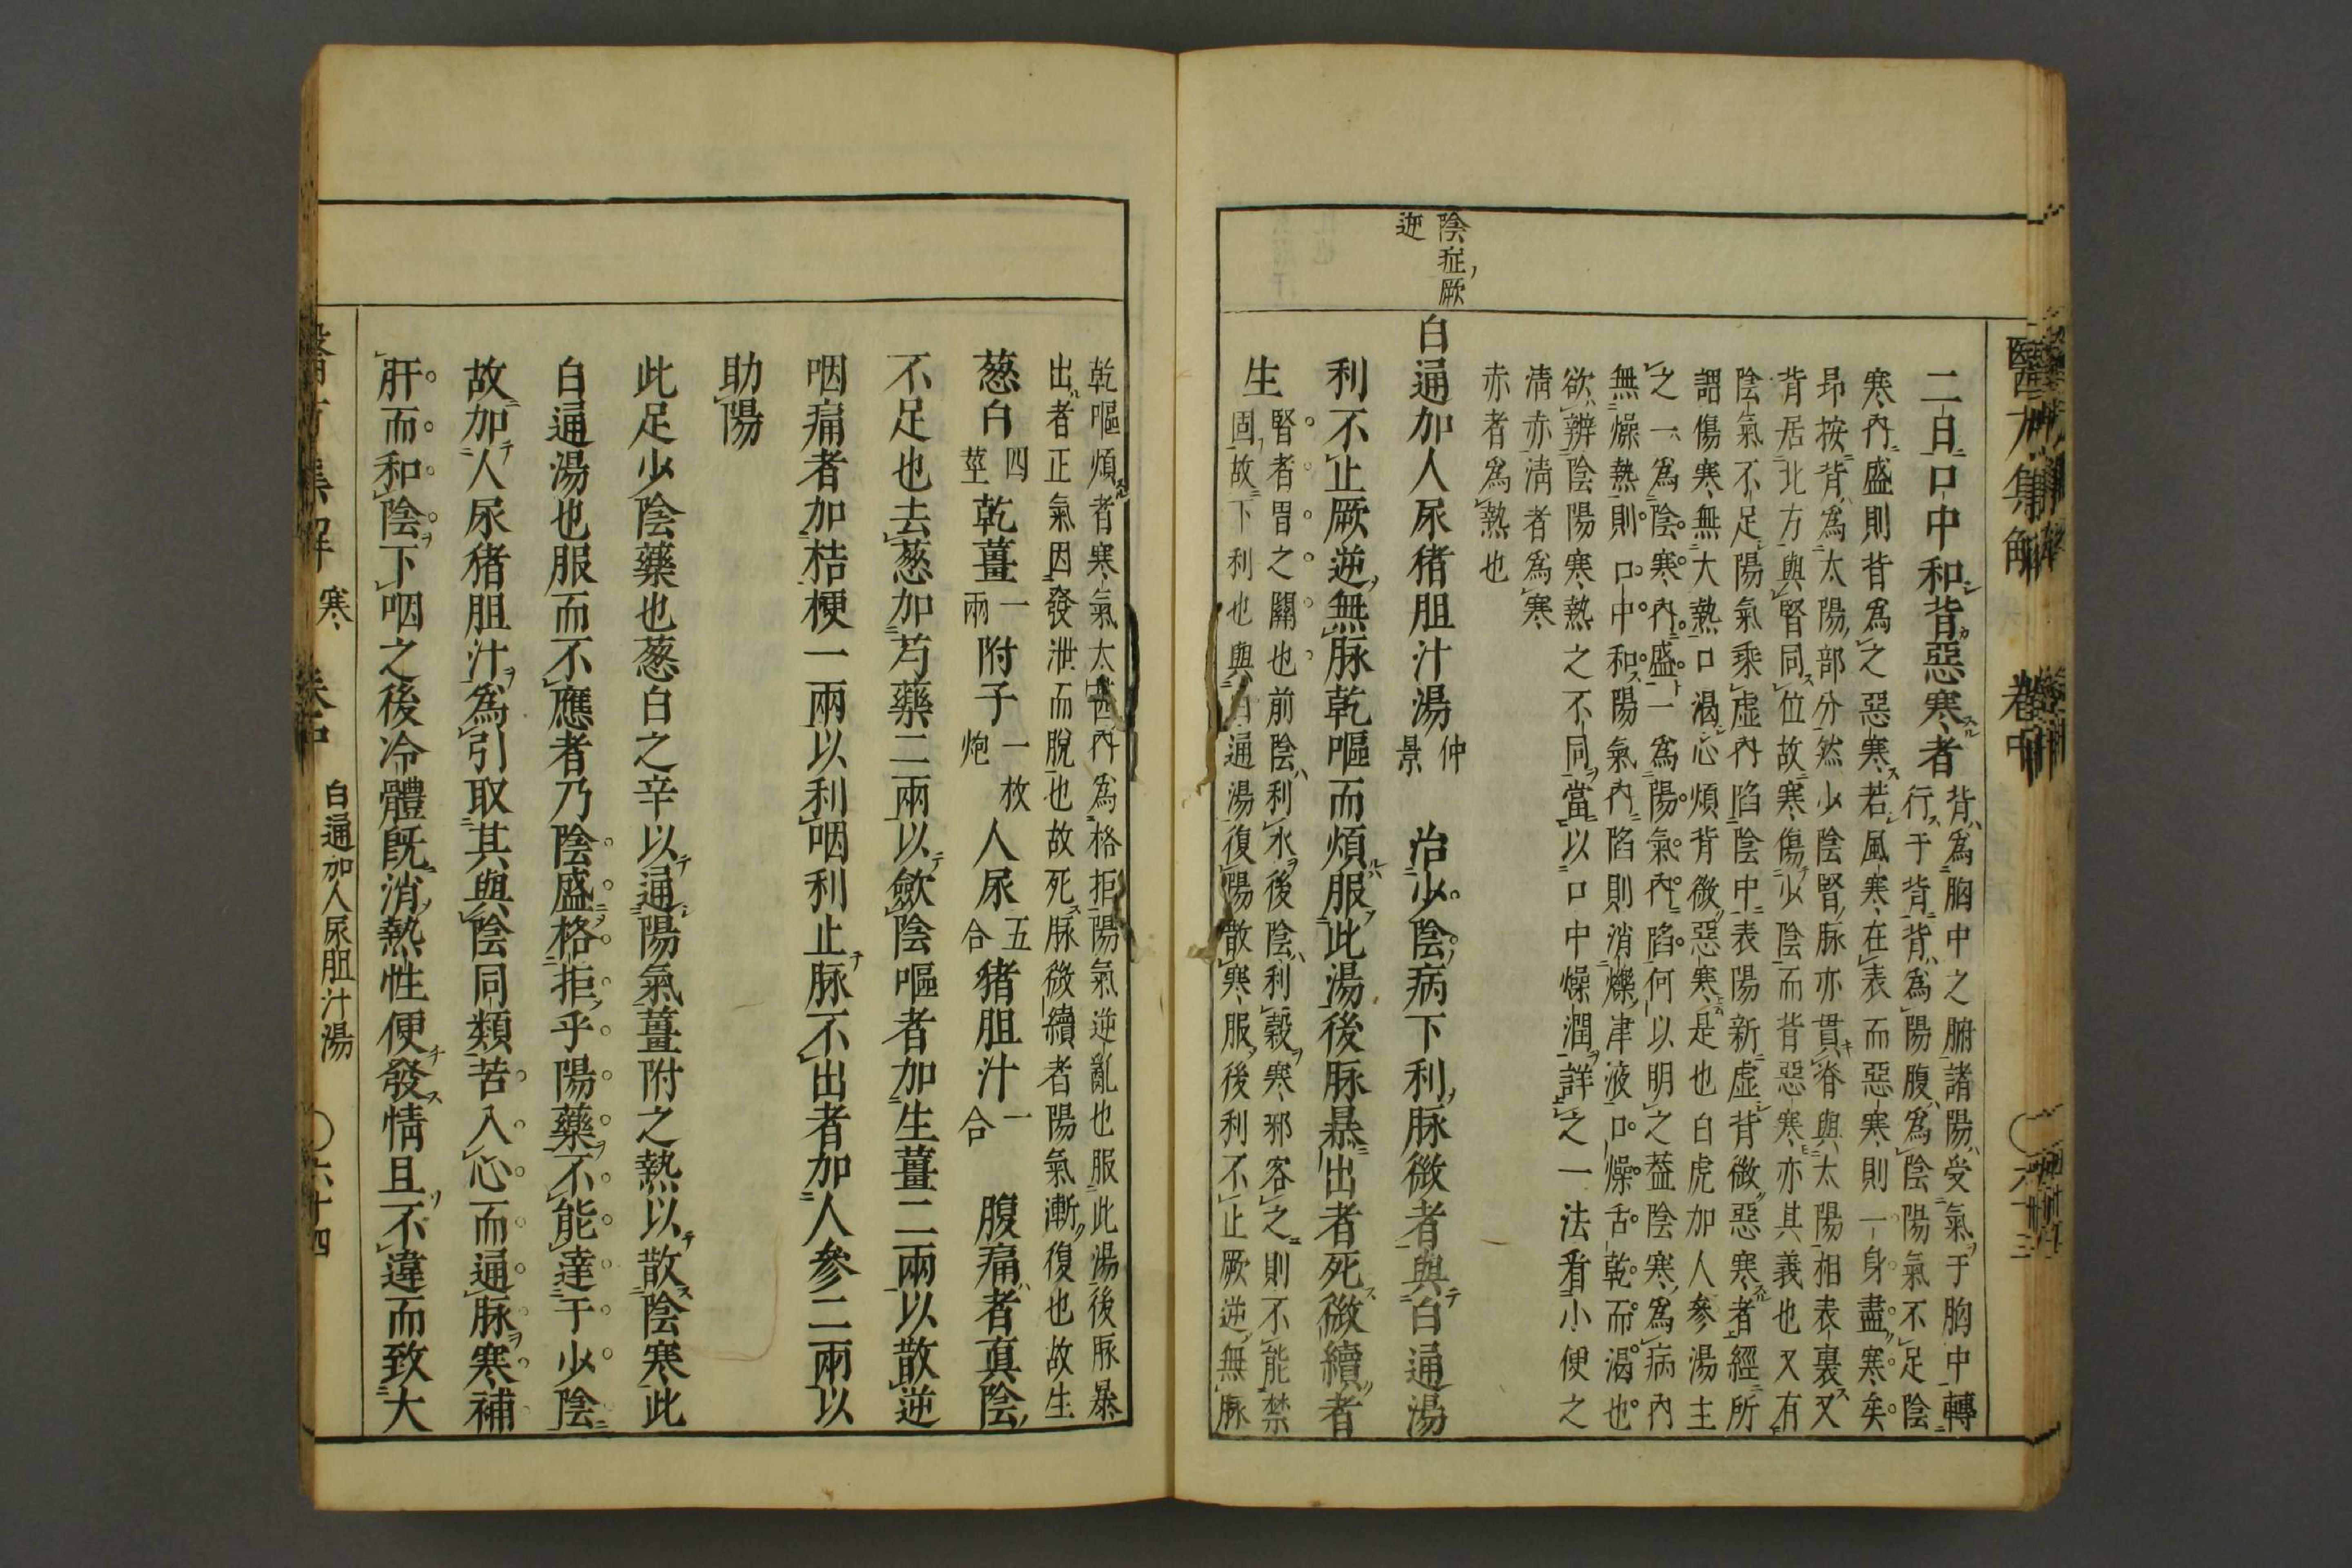 二日口中和背惡寒者
背為胸中之腑諸陽受氣于胸中轉
行于背背為陽腹為陰陽氣不足陰
寒內盛則背為之惡寒若風寒在表而惡寒則一身盡寒矣
昂按背為太陽部分然少陰腎脉亦貫脊與太陽相表裏又
背居北方與腎同位故寒傷少陰而背惡寒亦其義也又有
陰氣不足陽氣乘虛內陷陰中表陽新虛背微惡寒者經所
謂傷寒無大熱口渴心煩背微惡寒是也白虎加人參湯主
之一為陰寒內盛一為陽氣內陷何以明之葢陰寒為病內
無燥熱則口中和陽氣內陷則消爍津液口燥舌乾而渴也
欲辨陰陽寒熱之不同當以口中燥潤詳之一法看小便之
淸赤淸者為寒
赤者為熱也
陰症厥
逆
白通加人尿猪胆汁湯仲景　治少陰病下利脉微者與白通湯
利不止厥逆無脉乾嘔而煩服此湯後脉暴出者死微續者
生
腎者胃之關也前陰利水後陰利穀寒邪客之則不能禁
固故下利也與白通湯復陽散寒服後利不止厥逆無脉
乾嘔煩者寒氣太甚內為格拒陽氣逆亂也服此湯後脉暴
出者正氣因發泄而脫也故死脉微續者陽氣漸復也故生
葱白四莖乾薑一兩附子一枚炮人尿五合猪胆汁一合　腹痛者眞陰
不足也去葱加芍藥二兩以斂陰嘔者加生薑二兩以散逆
咽痛者加桔梗一兩以利咽利止脉不出者加人參二兩以
助陽
此足少陰藥也葱白之辛以通陽氣薑附之熱以散陰寒此
白通湯也服而不應者乃陰盛格拒乎陽藥不能達于少陰
故加人尿猪胆汁為引取其與陰同類苦入心而通脉寒補
肝而和陰下咽之後冷體旣消熱性便發情且不違而致大
寒　卷中　白通加人尿胆汁湯　〇六十四